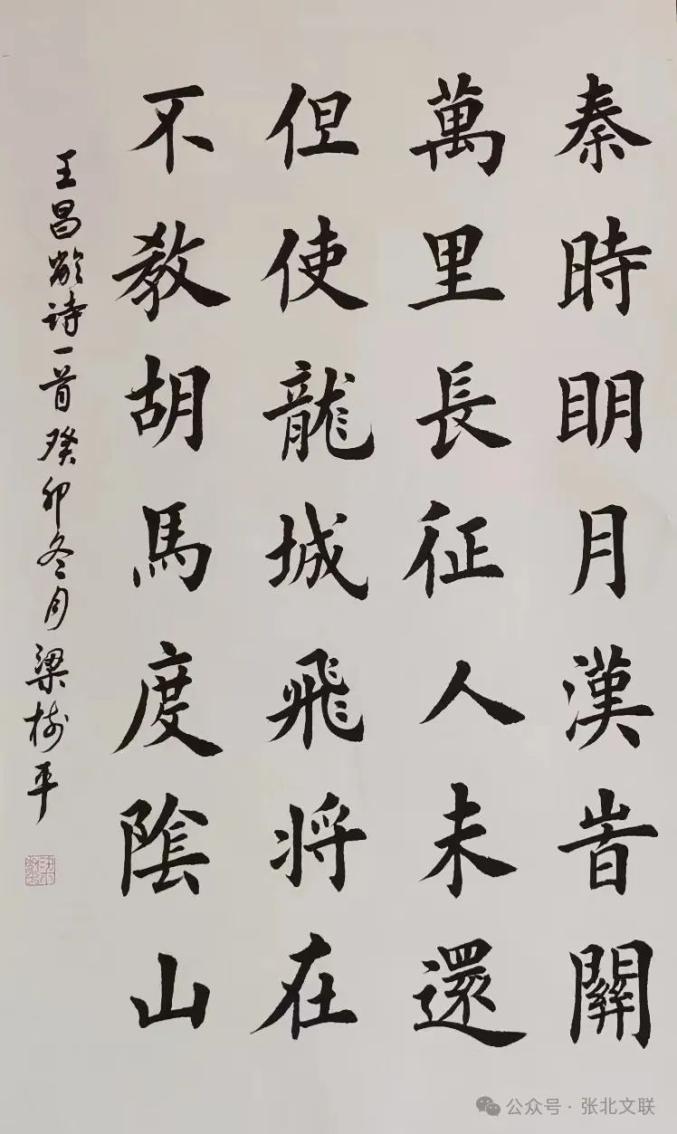 秦時明月漢旹關
萬里長征人未還
但使龍城飛将在
不教胡馬度陰山
王昌龄诗一首 癸卯冬月 梁树平
公众号·张北文联